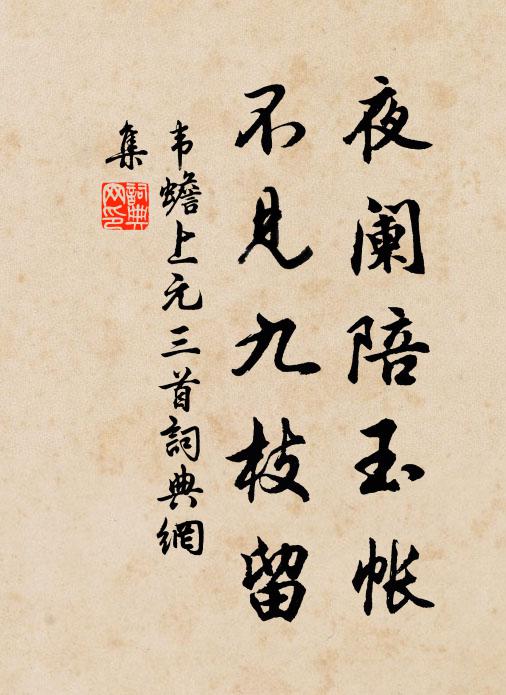 夜阑陪玉帐
不见九枝留
韦蟾上元三首詞典網
集
詞典網印